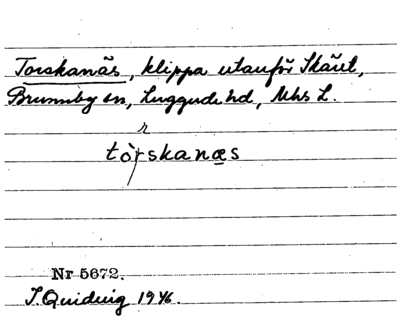 Torskanäs, klippa utanför Skäret,
Brunnby sn, Luggude hd, Mhs L.
r
tòrskanæs
Nr 5672.
I. Quiding 1946.